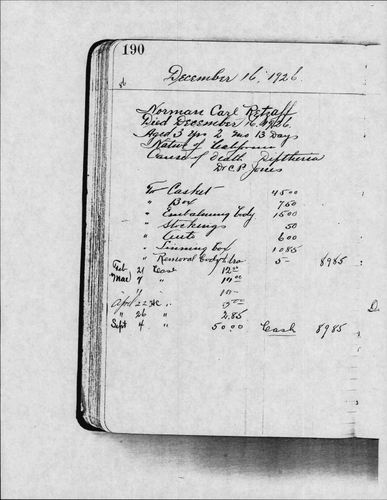 190
December 16, 1926
Norman Carl Retzaff
Died December 16, 1926
Aged 3 Yrs 2 Mo 13 Days
Native of California
Cause of death Diptheria
Dr C P Jones
To Casket 45 00
" Box 7 50
" Embalming Body 15 00
" Stockings 50
" Auto 6 00
" Lining box 10 85
" Removal Body 5 - 89 85
Feb 21 Cash 12 00
Mar 9 " 10 00
" 11 " 10 -
April 22 " 5 00
" 26 " 2.85
Sept 4 " 50 00 Cash 89 85